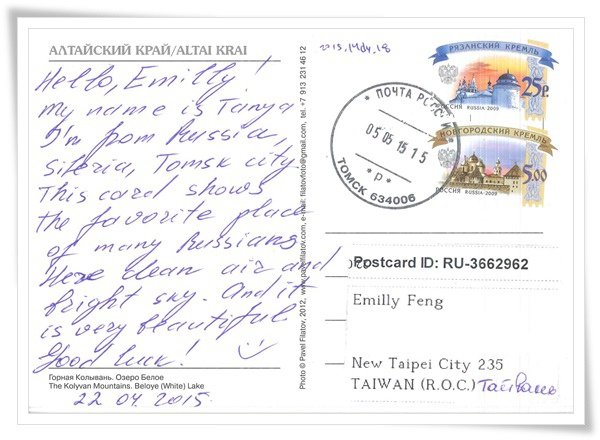 АЛТАЙСКИЙ КРАЙ/ALTAI KRAI
Hello, Emilly!
my name is Tanya
I'm from Russia,
siberia, Tomsk city.
This card shows
the favorite place
of many Russians
Here clean air and
bright sky. And it
is very beautiful
Good luck!
Горная Колывань. Озеро Белое
The Kolyvan Mountains. Beloye (White) Lake
22 04. 2015.
Photo © Pavel Filatov, 2012, www.pavelfilatov.com, e-mail: filatovfoto@gmail.com, tel. +7 913 231 46 12
2015. May. 18
РЯЗАНСКИЙ КРЕМЛЬ
25р.
РОССИЯ RUSSIA·2009
НОВГОРОДСКИЙ КРЕМЛЬ
5.00
РОССИЯ RUSSIA·2009
* ПОЧТА РОССИИ *
05 05 15 15
*р*
ТОМСК 634006
Postcard ID: RU-3662962
Emilly Feng
New Taipei City 235
TAIWAN (R.O.C.) Тайвань